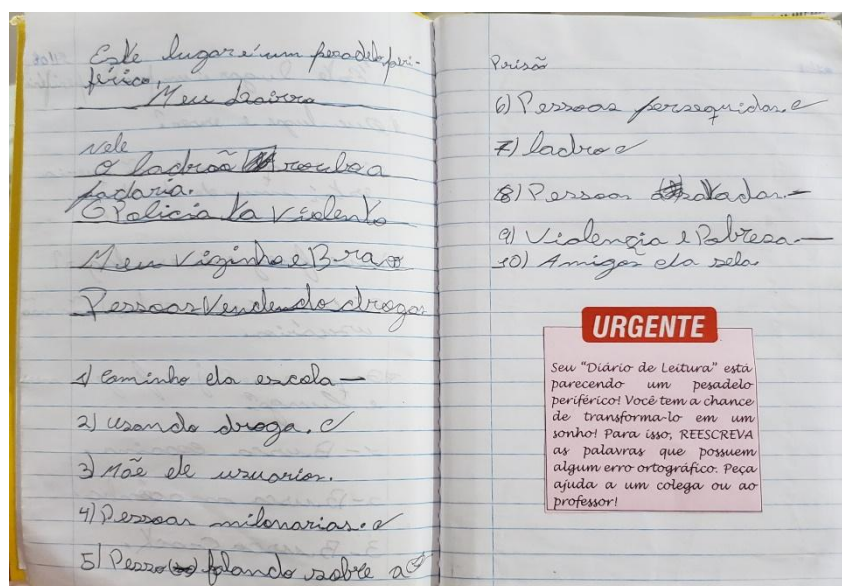 Este lugar é um pesadelo peri-
férico.
Meu bairro
Nele
O ladrão rouba a
padaria.
O Policia ta Violento
Meu Vizinho e Bravo
Pessoas Vendendo drogas
1) Caminho da escola —
2) usando droga.
3) Mãe de usuarios.
4) Pessoas milonarias.
5) Pesso falando sobre a
Prisão
6) Pessoas perseguidas.
7) ladroe
8) Pessoas —
9) Violençia e Pobresa. —
10) Amigos da sela.
URGENTE
Seu "Diário de Leitura" está
parecendo um pesadelo
periférico! Você tem a chance
de transforma-lo em um
sonho! Para isso, REESCREVA
as palavras que possuem
algum erro ortográfico. Peça
ajuda a um colega ou ao
professor!